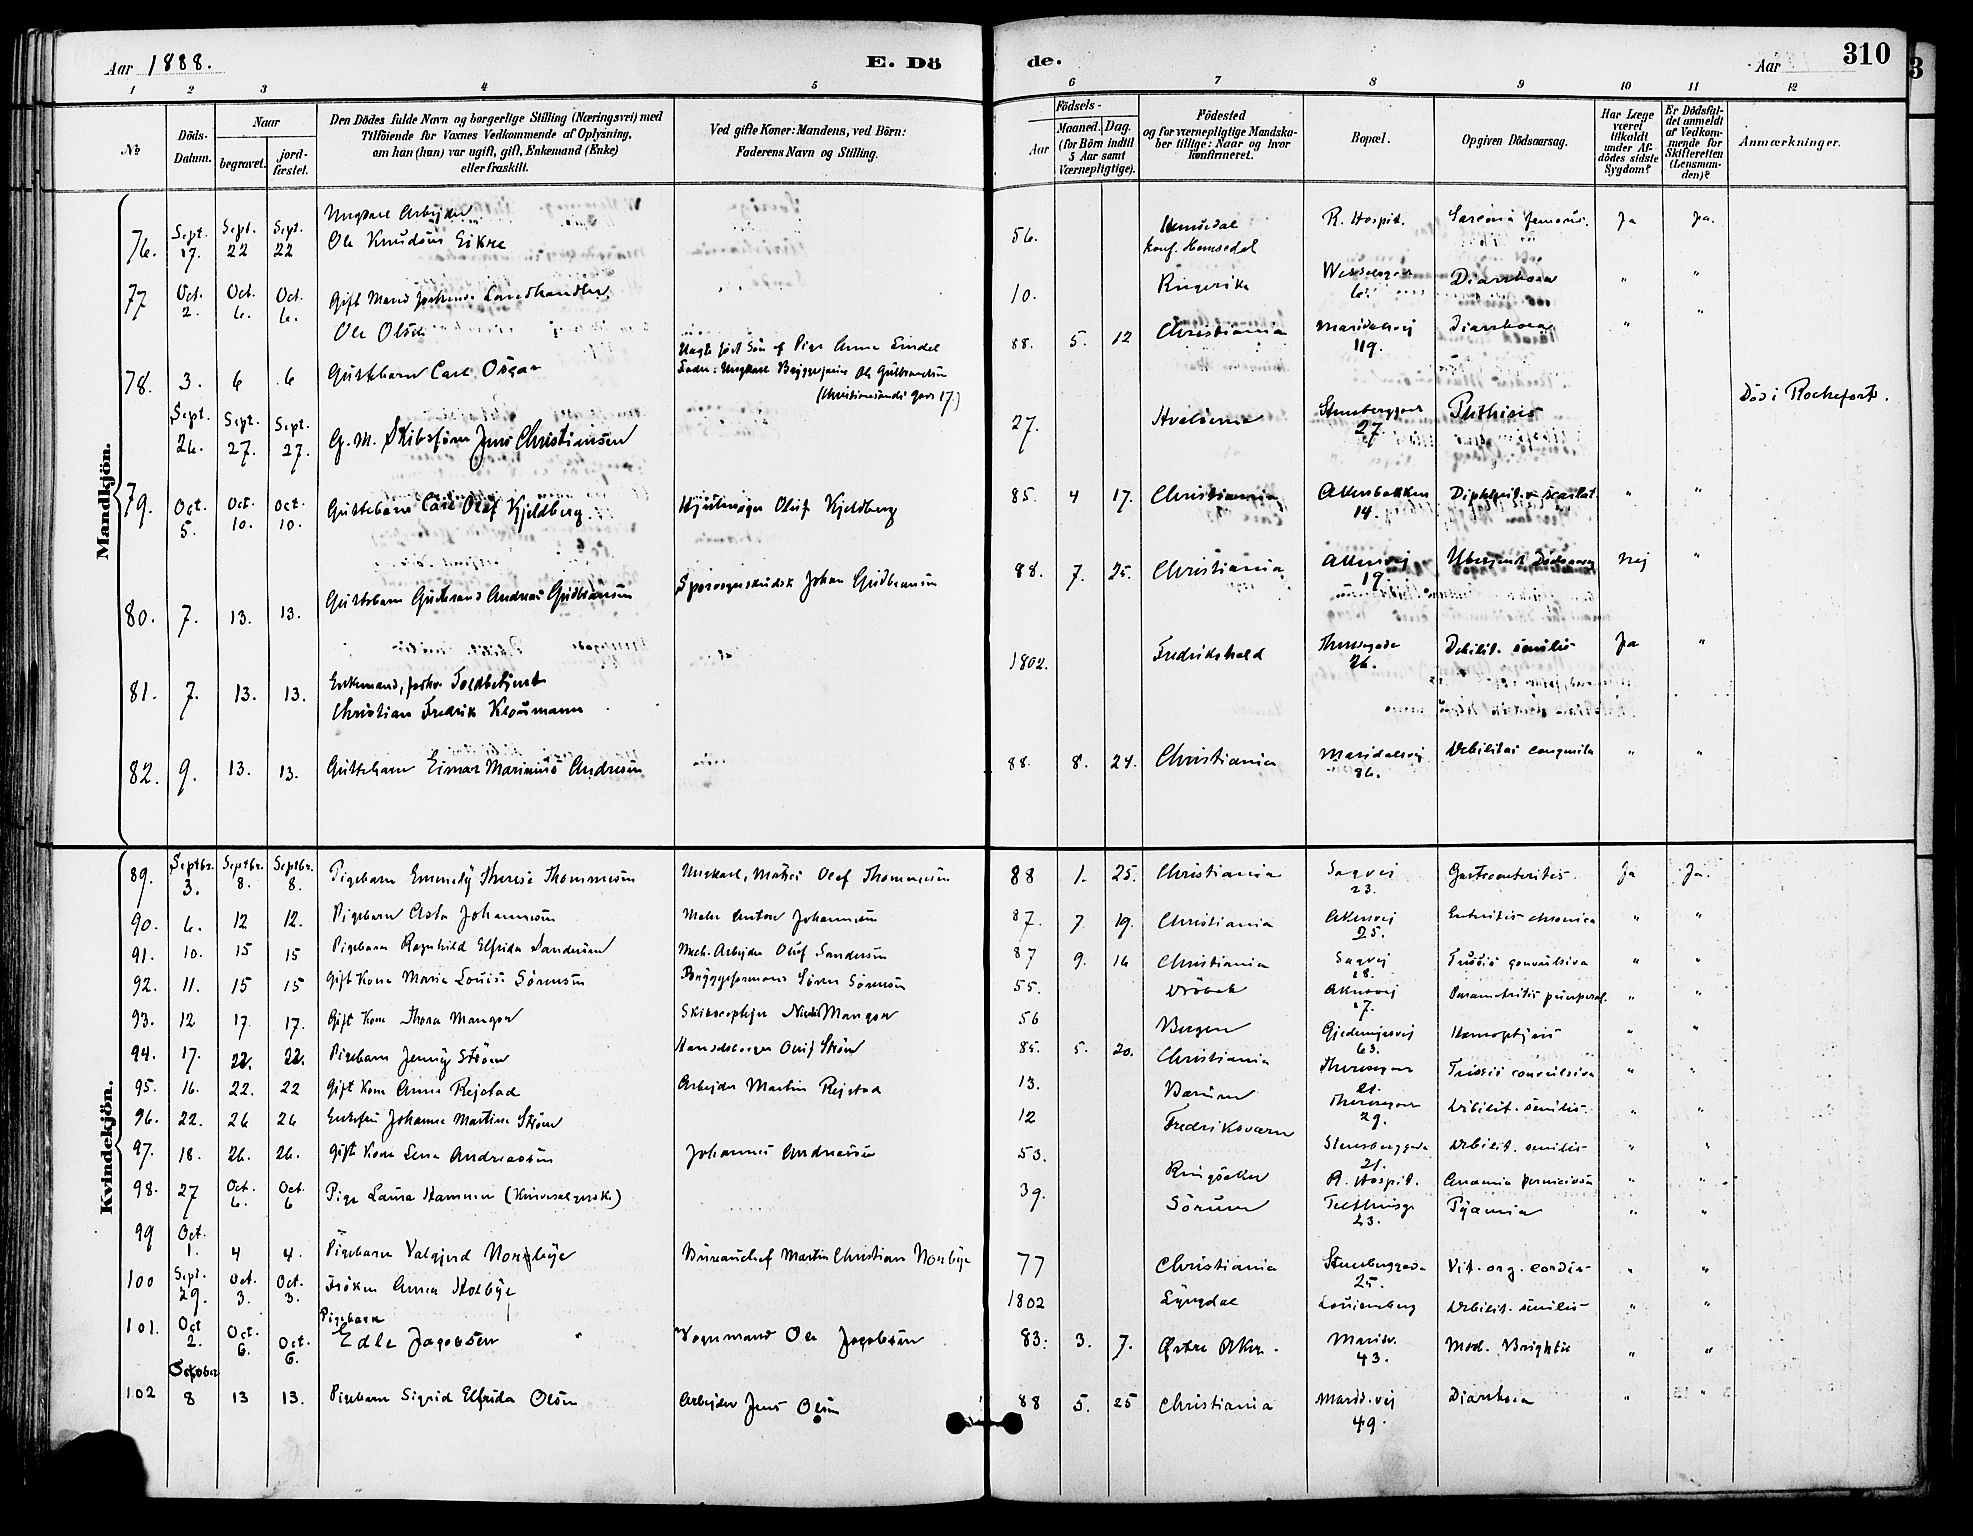 Aar 1888.
E. Dö
de.
Aar
310
1 2 3 4 5 6 7 8 9 10 11 12
No
Döds-Datum.
Naar
begravet.
jord-fæstet.
Den Dödes fulde Navn og borgerlige Stilling (Næringsvei) med
Tilföiende for Voxnes Vedkommende af Oplysning,
om han (hun) var ugift, gift, Enkemand (Enke)
eller fraskilt.
Ved gifte Koner: Mandens, ved Börn:
Faderens Navn og Stilling.
Födsels-
Aar
Maaned. Dag.
(for Börn indtil
5 Aar samt
Værnepligtige).
Födested
og for værnepligtige Mandska-
ber tillige: Naar og hvor
konfirmeret.
Bopæl.
Opgiven Dödsaarsag.
Har Læge
været
tilkaldt
under Af-
dödes sidste
Sygdom?
Er Dödsfal-
det anmeldt
af Vedkom-
mende for
Skifteretten
(Lensman-
den)?
Anmærkninger.
Mandkjön.
76. Sept. 17. Sept. 22 Sept. 22 Ungkarl Arbejder
Ole Knudsen Eikre 56. Hemsedal
konf. Hemsedal R. Hospit. Ja Ja.
77 Oct. 2. Oct. 6. Oct. 6. Gift Mand Landhandler
Ole Olsen 10. Ringerike 6. Diarrhoea " "
78. 3. 6 6 Guttebarn Carl Oscar Uægte født Søn af Pige Anna
Fader: Ungkarl Ole Gulbrandsen
(Christiansands gade 17) 88. 5. 12 Christiania Maridalsvej 119. Diarrhoea " "
Sept. 26. Sept. 27. Sept. 27. G. M. Skibsfører Jens Christiansen 27. Hvaløerne Stensberggade 27. Phthisis Død i Rochefort.
79. Oct. 5. Oct. 10. Oct. 10. Guttebarn Carl Olaf Kjeldberg Hjulmager Oluf Kjeldberg 85. 4 17. Christiania Akersbakken 14. Diphtherit. & scarlat. " "
80. 7. 13. 13. Guttebarn Gulbrand Andreas Gulbransen Sporvognskudsk Johan Gulbransen 88. 7. 25. Christiania Akersvej 19. Ubekjendt Dødsaarsag Nej "
81. 7. 13. 13. Enkemand, forhv. Toldbetjent
Christian Fredrik Kloumann 1802. Fredrikshald Theresegade 26. Debilit. senilis Ja "
82. 9. 13. 13. Guttebarn Einar Marinius Andresen 88. 8. 24. Christiania Maridalsvej 86. Debilitas congenita " "
Kvindekjön.
89. Septbr. 3. Septbr. 8. Septbr. 8. Pigebarn Emmely Therese Thommesen Ungkarl, Matros Olaf Thommesen 88 1. 25. Christiania Sagvej 23. Gastroenteritis Ja Ja.
90. 6. 12 12. Pigebarn Asta Johannesen Maler Anton Johannesen 87. 7 19. Christiania Akersvej 25. Enteritis chronica " "
91. 10. 15 15 Pigebarn Ragnhild Elfrida Sandersen Mech. Arbejder Oluf Sandersen 87 9. 16 Christiania Sagvej 18. Tussis convulsiva " "
92. 11. 15 15 Gift Kone Maria Louise Sørensen Bryggeformand Søren Sørensen 55. Drøbak Akersvej 17. Parametritis puerperal. " "
93. 12 17. 17. Gift Kone Thora Mangor Mangor 56 Bergen Gjetemyrsvej 63. Hæmoptysis " "
94. 17. 22. 22. Pigebarn Jenny Strøm Oluf Strøm 85. 5. 20. Christiania Theresegade 21. Tussis convulsiva " "
95. 16. 22. 22 Gift Kone Anne Rejstad Arbejder Martin Rejstad 13. Bærum Theresegade 29. Debilit. senilis " "
96. 22. 26 26 Enkefru Johanne Martine Strøm 12 Fredriksværn Stensberggade 21. Debilit. senilis " "
97. 18. 26. 26. Gift Kone Lena Andreassen Johannes Andreasen 53. Ringsaker R. Hospit. Anæmia perniciosa " "
98. 27 Oct. 6. Oct. 6 Pige Laura Hammer 39. Sørum Telthusgd. 23. Pyæmia " "
99 Oct. 1. 4 4. Pigebarn Valgjerd Norbye Bureauchef Martin Christian Norbye 77 Christiania Stensberggade 25. Vit. org. cordis " "
100 Sept. 29. Oct. 3. Oct. 3. Frøken Anna Holbye 1802 Lyngdal Louisenberg Debilit. senilis " "
101. Oct 2. Oct. 6. Oct. 6. Pigebarn
Edle Jacobsen Vognmand Ole Jacobsen 83. 3. 7. Østre Aker. Maridv. 43. Morb. Brightii " "
102 October 8 13 13. Pigebarn Sigrid Elfrida Olsen Arbejder Jens Olsen 88 5. 25 Christiania Marid.vej 49. Diarrhoea " "